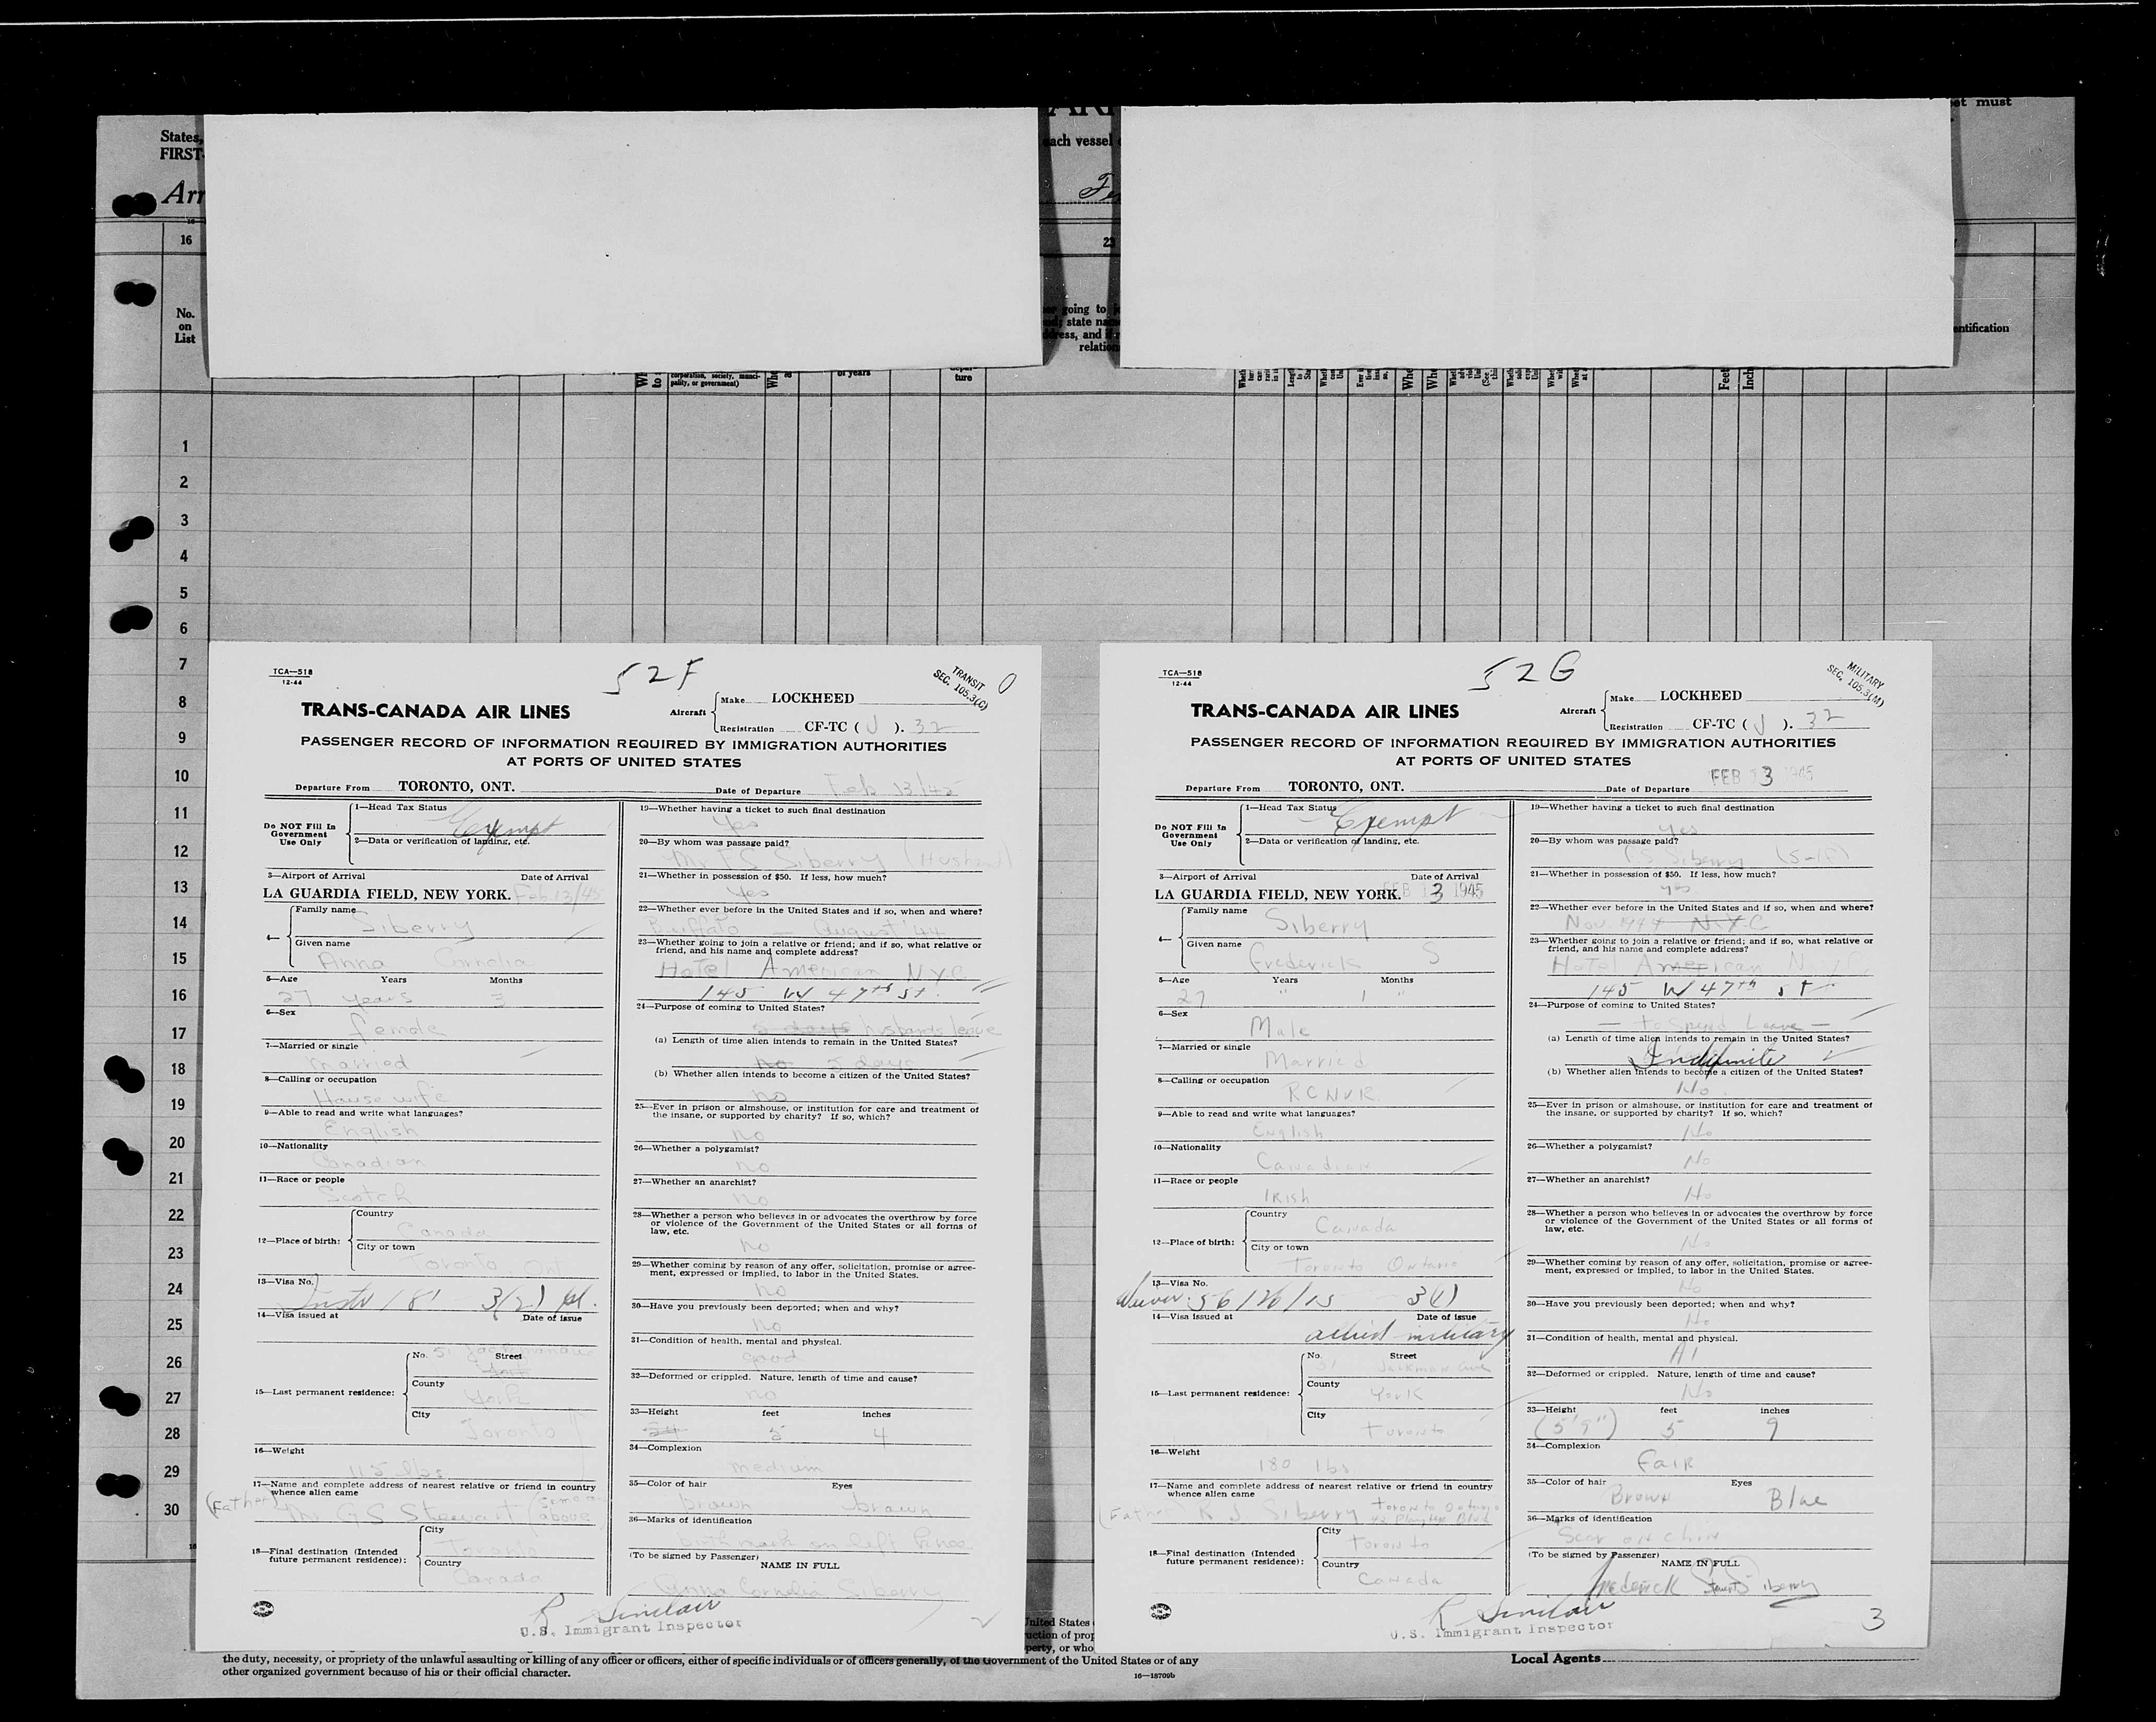 States,
FIRST-
Arr
16
No.
on
List
ach vessel
23
going to
state
ress, and
relation
et must
entification
corporation, society, munici-
pality, or government)
of years
ture
Feet
Inch
1
2
3
4
5
6
7
8
9
10
11
12
13
14
15
16
17
18
19
20
21
22
23
24
25
26
27
28
29
30
TCA—518
12-44
52F
TRANSIT
SEC. 105.3(C)
0
TRANS-CANADA AIR LINES
Aircraft
Make LOCKHEED
Registration CF-TC ( J ). 32
PASSENGER RECORD OF INFORMATION REQUIRED BY IMMIGRATION AUTHORITIES
AT PORTS OF UNITED STATES
Departure From TORONTO, ONT. Date of Departure Feb 13/45
Do NOT Fill In
Government
Use Only
1—Head Tax Status
Exempt
2—Data or verification of landing, etc.
3—Airport of Arrival Date of Arrival
LA GUARDIA FIELD, NEW YORK. Feb 13/45
4—
Family name
Siberry
Given name
Anna Cornelia
5—Age Years Months
27 years 3
6—Sex
female
7—Married or single
married
8—Calling or occupation
House wife
9—Able to read and write what languages?
English
10—Nationality
Canadian
11—Race or people
Scotch
12—Place of birth:
Country
Canada
City or town
Toronto, Ont
13—Visa No.
181 3(2)
14—Visa issued at Date of issue
15—Last permanent residence:
No. 51 Street
County
York
City
Toronto
16—Weight
115 lbs
17—Name and complete address of nearest relative or friend in country
whence alien came
(Father) Mr G S Stewart (same as above
18—Final destination (Intended
future permanent residence):
City
Toronto
Country
Canada
R Sinclair
U.S. Immigrant Inspector
19—Whether having a ticket to such final destination
Yes
20—By whom was passage paid?
Mr F.S Siberry (Husband)
21—Whether in possession of $50. If less, how much?
Yes
22—Whether ever before in the United States and if so, when and where?
Buffalo — August 44
23—Whether going to join a relative or friend; and if so, what relative or
friend, and his name and complete address?
Hotel American NYC
145 W 47th St.
24—Purpose of coming to United States?
5 days husbands leave
(a) Length of time alien intends to remain in the United States?
no 5 days
(b) Whether alien intends to become a citizen of the United States?
no
25—Ever in prison or almshouse, or institution for care and treatment of
the insane, or supported by charity? If so, which?
no
26—Whether a polygamist?
no
27—Whether an anarchist?
no
28—Whether a person who believes in or advocates the overthrow by force
or violence of the Government of the United States or all forms of
law, etc.
no
29—Whether coming by reason of any offer, solicitation, promise or agree-
ment, expressed or implied, to labor in the United States.
no
30—Have you previously been deported; when and why?
no
31—Condition of health, mental and physical.
good
32—Deformed or crippled. Nature, length of time and cause?
no
33—Height feet inches
5 4
34—Complexion
medium
35—Color of hair Eyes
brown brown
36—Marks of identification
birthmark on left knee
(To be signed by Passenger)
NAME IN FULL
Anna Cornelia Siberry
TCA—518
12-44
52G
MILITARY
SEC. 105.3(M)
TRANS-CANADA AIR LINES
Aircraft
Make LOCKHEED
Registration CF-TC ( J ). 32
PASSENGER RECORD OF INFORMATION REQUIRED BY IMMIGRATION AUTHORITIES
AT PORTS OF UNITED STATES
Departure From TORONTO, ONT. Date of Departure FEB 13 1945
Do NOT Fill In
Government
Use Only
1—Head Tax Status
Exempt
2—Data or verification of landing, etc.
3—Airport of Arrival Date of Arrival
LA GUARDIA FIELD, NEW YORK. FEB 13 1945
4—
Family name
Siberry
Given name
Frederick S
5—Age Years Months
27 " 1 "
6—Sex
Male
7—Married or single
Married
8—Calling or occupation
RCNVR.
9—Able to read and write what languages?
English
10—Nationality
Canadian
11—Race or people
Irish
12—Place of birth:
Country
Canada
City or town
Toronto Ontario
13—Visa No.
Waiver 56126/15 3(1)
14—Visa issued at Date of issue
allied military
15—Last permanent residence:
No. Street
51 Jackman Ave
County
York
City
Toronto
16—Weight
180 lbs
17—Name and complete address of nearest relative or friend in country
whence alien came
(Father R J Siberry Toronto Ontario
Blvd
18—Final destination (Intended
future permanent residence):
City
Toronto
Country
Canada
R Sinclair
U.S. Immigrant Inspector
19—Whether having a ticket to such final destination
yes
20—By whom was passage paid?
F S Siberry (Self)
21—Whether in possession of $50. If less, how much?
yes
22—Whether ever before in the United States and if so, when and where?
Nov 1944 N.Y.C
23—Whether going to join a relative or friend; and if so, what relative or
friend, and his name and complete address?
Hotel American N.Y.C.
145 W 47th St
24—Purpose of coming to United States?
— to Spend Leave —
(a) Length of time alien intends to remain in the United States?
Indefinite
(b) Whether alien intends to become a citizen of the United States?
No.
25—Ever in prison or almshouse, or institution for care and treatment of
the insane, or supported by charity? If so, which?
No
26—Whether a polygamist?
No
27—Whether an anarchist?
No
28—Whether a person who believes in or advocates the overthrow by force
or violence of the Government of the United States or all forms of
law, etc.
No
29—Whether coming by reason of any offer, solicitation, promise or agree-
ment, expressed or implied, to labor in the United States.
No
30—Have you previously been deported; when and why?
No
31—Condition of health, mental and physical.
A1
32—Deformed or crippled. Nature, length of time and cause?
No
33—Height feet inches
(5'9") 5 9
34—Complexion
Fair
35—Color of hair Eyes
Brown Blue
36—Marks of identification
Scar on chin
(To be signed by Passenger)
NAME IN FULL
Frederick Stewart Siberry
3
United States
uction of prop
perty, or who
the duty, necessity, or propriety of the unlawful assaulting or killing of any officer or officers, either of specific individuals or of officers generally, of the Government of the United States or of any
other organized government because of his or their official character.
16—18709b
Local Agents